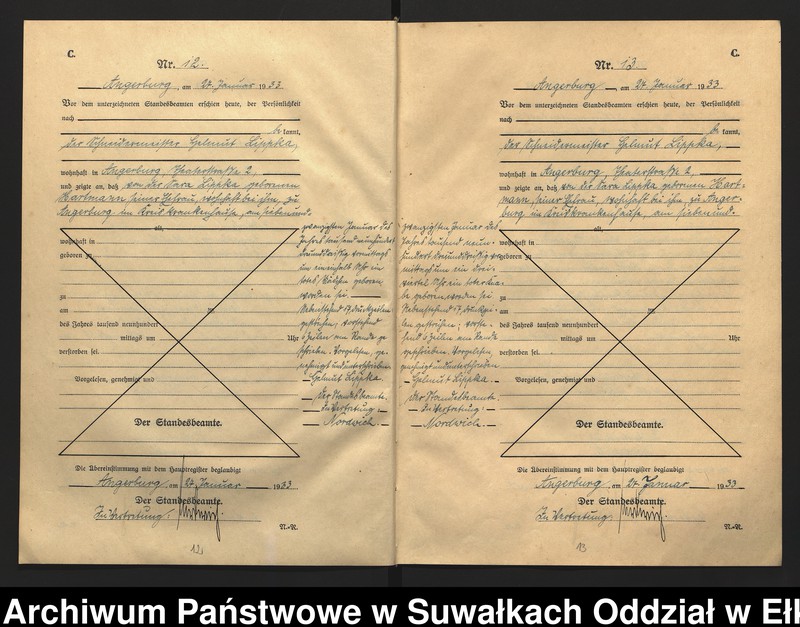 C.
Nr. 12.
Angerburg, am 27. Januar 1933
Vor dem unterzeichneten Standesbeamten erschien heute, der Persönlichkeit
nach
be kannt,
der Schneidermeister Helmut Lippka,
wohnhaft in Angerburg, Theaterstraße 2,
und zeigte an, daß von der Sara Lippka geborenen
Hartmann, seiner Ehefrau, wohnhaft bei ihm, zu
Angerburg im Kreiskrankenhause, am siebenund-
alt,
wohnhaft in
geboren zu
zu
am
des Jahres tausend neunhundert
mittags um
Uhr
verstorben sei.
Vorgelesen, genehmigt und
Der Standesbeamte.
zwanzigsten Januar des
Jahres tausend neunhundert
dreiunddreißig vormittags
um einhalb Uhr ein
totes Mädchen geboren
worden sei.
Nebenstehend 17 Druckzeilen
gestrichen, vorstehend
6 Zeilen am Rande ge-
schrieben. Vorgelesen, ge-
nehmigt und unterschrieben
Helmut Lippka.
Der Standesbeamte.
In Vertretung:
Nordwich.
Die Übereinstimmung mit dem Hauptregister beglaubigt
Angerburg, am 27. Januar 1933
Der Standesbeamte.
In Vertretung:
N.-R.
12
C.
Nr. 13.
Angerburg, am 27. Januar 1933
Vor dem unterzeichneten Standesbeamten erschien heute, der Persönlichkeit
nach
be kannt,
der Schneidermeister Helmut Lippka,
wohnhaft in Angerburg, Theaterstraße 2,
und zeigte an, daß von der Sara Lippka geborenen Hart-
mann, seiner Ehefrau, wohnhaft bei ihm, zu Anger-
burg im Kreiskrankenhause, am siebenund-
zwanzigsten Januar des
Jahres tausend neun-
hundert dreiunddreißig vor-
mittags um ein drei-
viertel Uhr ein toter Kna-
be geboren worden sei.
Nebenstehend 17 Druckzei-
len gestrichen; vorste-
hend 6 Zeilen am Rande
geschrieben. Vorgelesen,
genehmigt und unterschrieben
Helmut Lippka.
Der Standesbeamte
In Vertretung:
Nordwich.
alt,
wohnhaft in
geboren zu
zu
am
des Jahres tausend neunhundert
mittags um
Uhr
verstorben sei.
Vorgelesen, genehmigt und
Der Standesbeamte.
Die Übereinstimmung mit dem Hauptregister beglaubigt
Angerburg, am 27. Januar 1933
Der Standesbeamte.
In Vertretung
N.-R.
13
Archiwum Państwowe w Suwałkach Oddział w Ełk